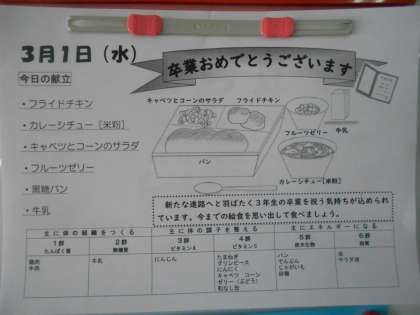 3月1日（水）
卒業おめでとうございます
今日の献立
・フライドチキン
・カレーシチュー［米粉］
・キャベツとコーンのサラダ
・フルーツゼリー
・黒糖パン
・牛乳
キャベツとコーンのサラダ
フライドチキン
フルーツゼリー
牛乳
パン
カレーシチュー［米粉］
新たな進路へと羽ばたく３年生の卒業を祝う気持ちが込められ
ています。今までの給食を思い出して食べましょう。
主に体の組織をつくる 主に体の調子を整える 主にエネルギーになる
1群 2群 3群 4群 5群 6群
たんぱく質 無機質 ビタミンA ビタミンC 炭水化物 脂質
鶏肉 牛乳 にんじん たまねぎ パン 油
グリンピース でんぷん サラダ油
にんにく じゃがいも
キャベツ コーン 砂糖
ゼリー（ぶどう）